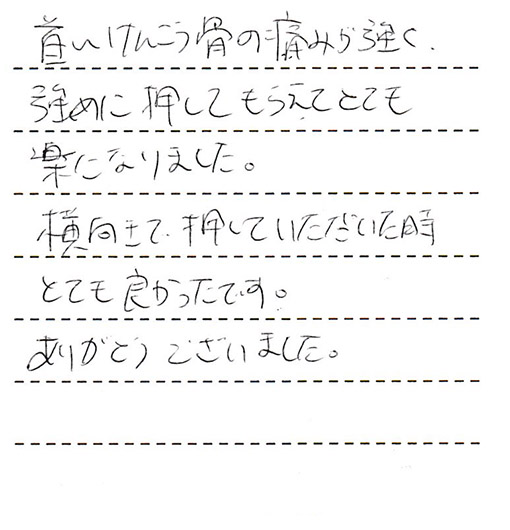 首、けんこう骨の痛みが強く、
強めに押してもらえてとても
楽になりました。
横向きで押していただいた時
とても良かったです。
ありがとうございました。